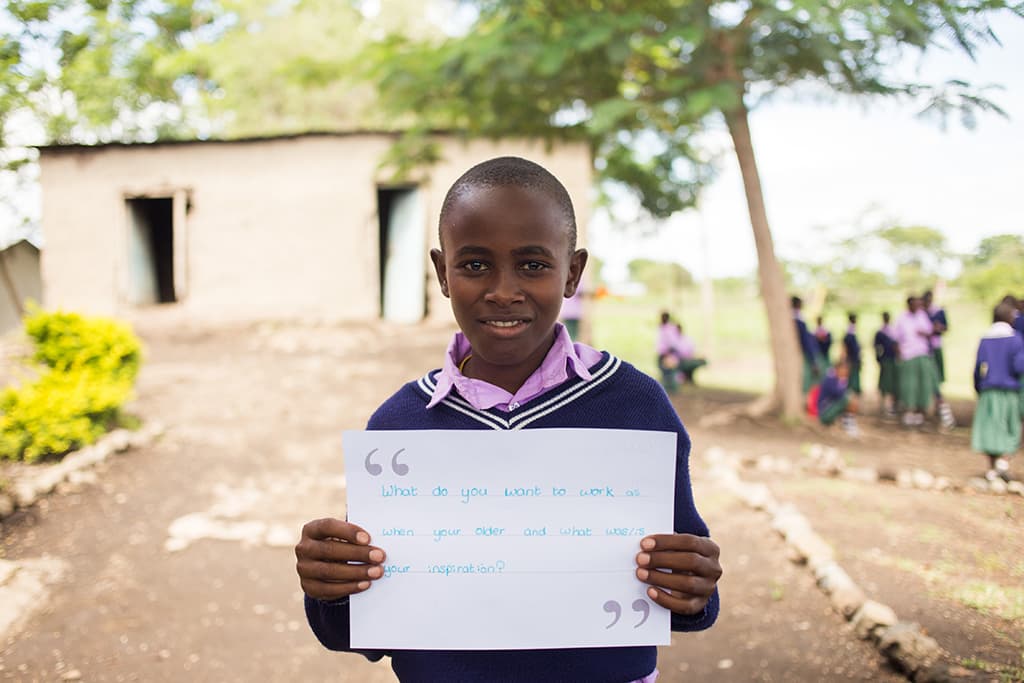 “
What do you want to work as
when your older and what was/is
your inspiration?
”